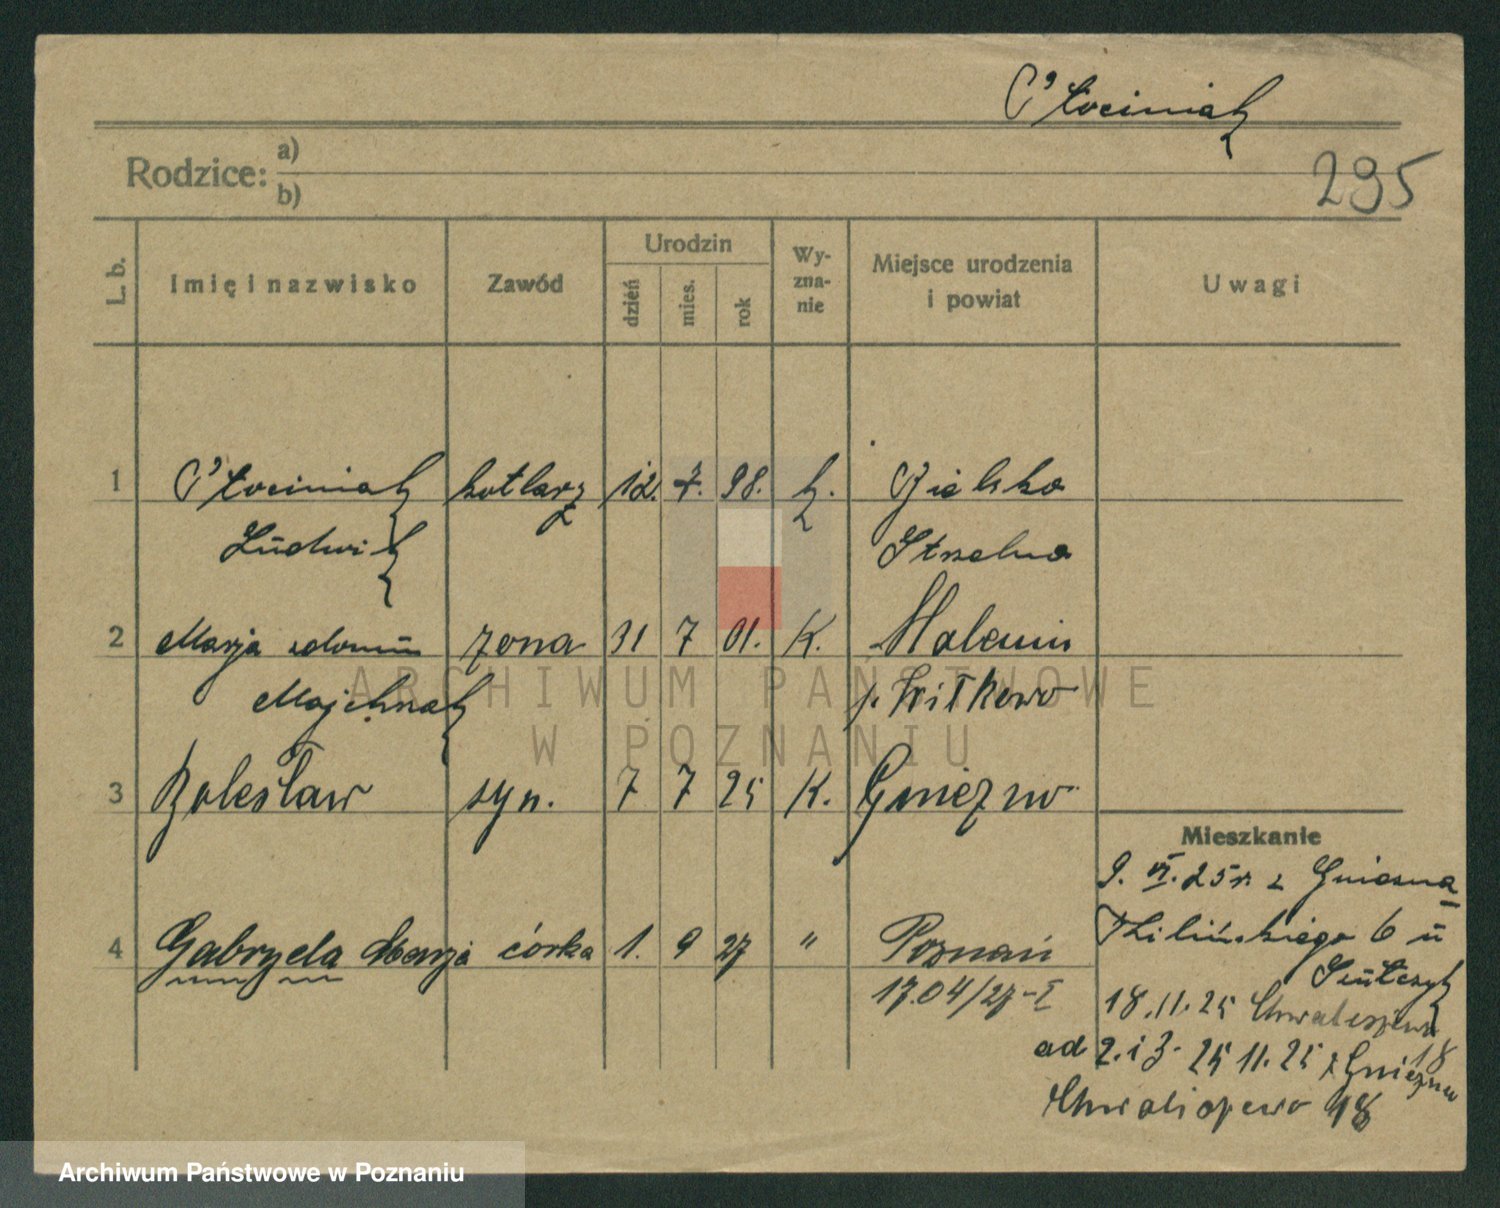 Człociniak
295
Rodzice: a)
b)
L. b. Imię i nazwisko Zawód Urodzin dzień mies. rok Wy-zna-nie Miejsce urodzenia i powiat Uwagi
1 kotlarz 12. 7. 98. k. Bielsko
Ludwik Strzelno
2 Marja zdomu żona 31 7 01. K.
Majchrzak p. Witkowo
ARCHIWUM PAŃSTWOWE
W POZNANIU
3 Bolesław syn. 7 7 25 K. Gniezno
Mieszkanie
9. VI. 25 r z Gniezna
4 Gabryela Marja córka 1. 9 27 " Poznań
6 u
1704/27-I
18.11.25 Chwaliszewo
18
ad 2. i 3. 25 11. 25 z Gniezna
Chwaliszewo 18
Archiwum Państwowe w Poznaniu